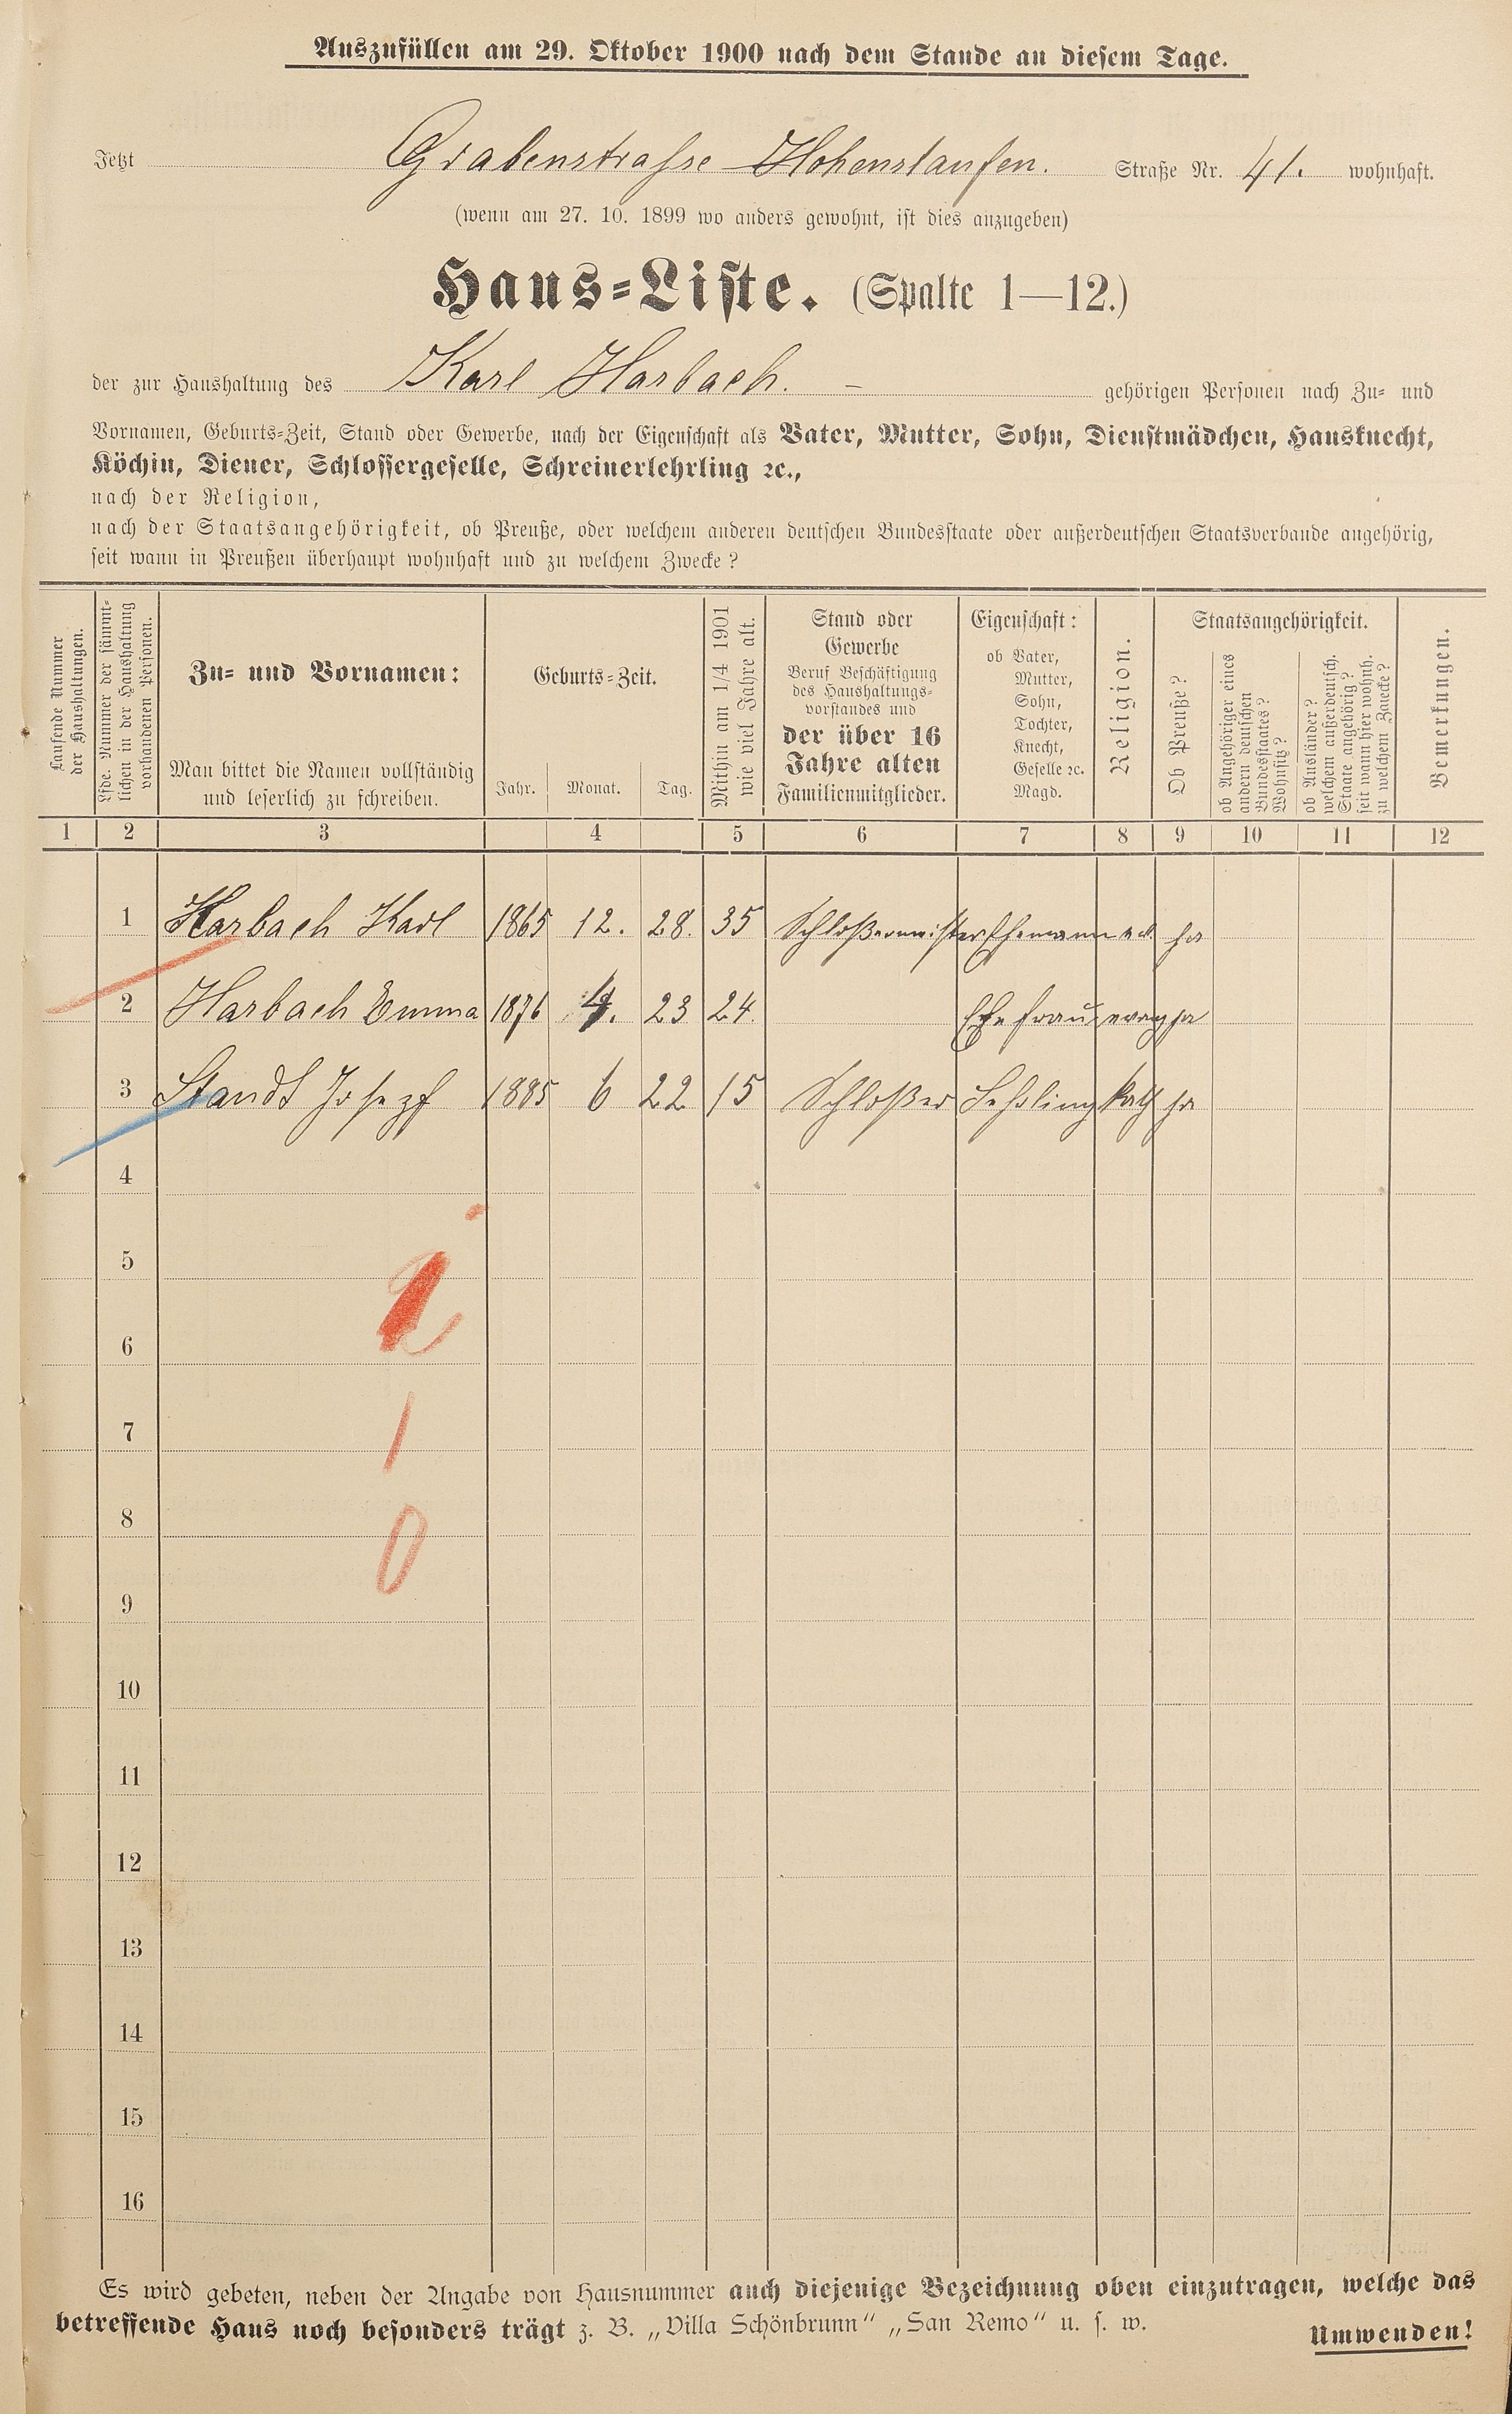 Auszufüllen am 29. Oktober 1900 nach dem Stande an diesem Tage.
Jetzt Grabenstrasse Hohenstaufen. Straße Nr. 41. wohnhaft.
(wenn am 27. 10. 1899 wo anders gewohnt, ist dies anzugeben)
Haus-Liste. (Spalte 1—12.)
der zur Haushaltung des Karl Harbach. – gehörigen Personen nach Zu- und
Vornamen, Geburts-Zeit, Stand oder Gewerbe, nach der Eigenschaft als Vater, Mutter, Sohn, Dienstmädchen, Hausknecht,
Köchin, Diener, Schlossergeselle, Schreinerlehrling ꝛc.,
nach der Religion,
nach der Staatsangehörigkeit, ob Preuße, oder welchem anderen deutschen Bundesstaate oder außerdeutschen Staatsverbande angehörig,
seit wann in Preußen überhaupt wohnhaft und zu welchem Zwecke?
Laufende Nummer
der Haushaltungen.
Lfde. Nummer der sämmt-
lichen in der Haushaltung
vorhandenen Personen.
Zu- und Vornamen:
Man bittet die Namen vollständig
und leserlich zu schreiben.
Geburts-Zeit.
Jahr. Monat. Tag.
Mithin am 1/4 1901
wie viel Jahre alt.
Stand oder
Gewerbe
Beruf Beschäftigung
des Haushaltungs-
vorstandes und
der über 16
Jahre alten
Familienmitglieder.
Eigenschaft:
ob Vater,
Mutter,
Sohn,
Tochter,
Knecht,
Geselle ꝛc.
Magd.
Religion.
Staatsangehörigkeit.
Ob Preuße?
ob Angehöriger eines
andern deutschen
Bundesstaates?
Wohnsitz?
ob Ausländer?
welchem außerdeutsch.
Staate angehörig?
seit wann hier wohnh.
zu welchem Zwecke?
Bemerkungen.
1 2 3 4 5 6 7 8 9 10 11 12
1 Harbach Karl 1865 12. 28. 35 Schloßermeister Ehemann ja
2 Harbach Emma 1876 4. 23 24. Ehefrau evang ja
3 Standt Josepf 1885 6 22 15 Schloßer Lehrling kath ja
4
5
6
7
1
8
0
9
10
11
12
13
14
15
16
Es wird gebeten, neben der Angabe von Hausnummer auch diejenige Bezeichnung oben einzutragen, welche das
betreffende Haus noch besonders trägt z. B. „Villa Schönbrunn" „San Remo" u. s. w.
Umwenden!